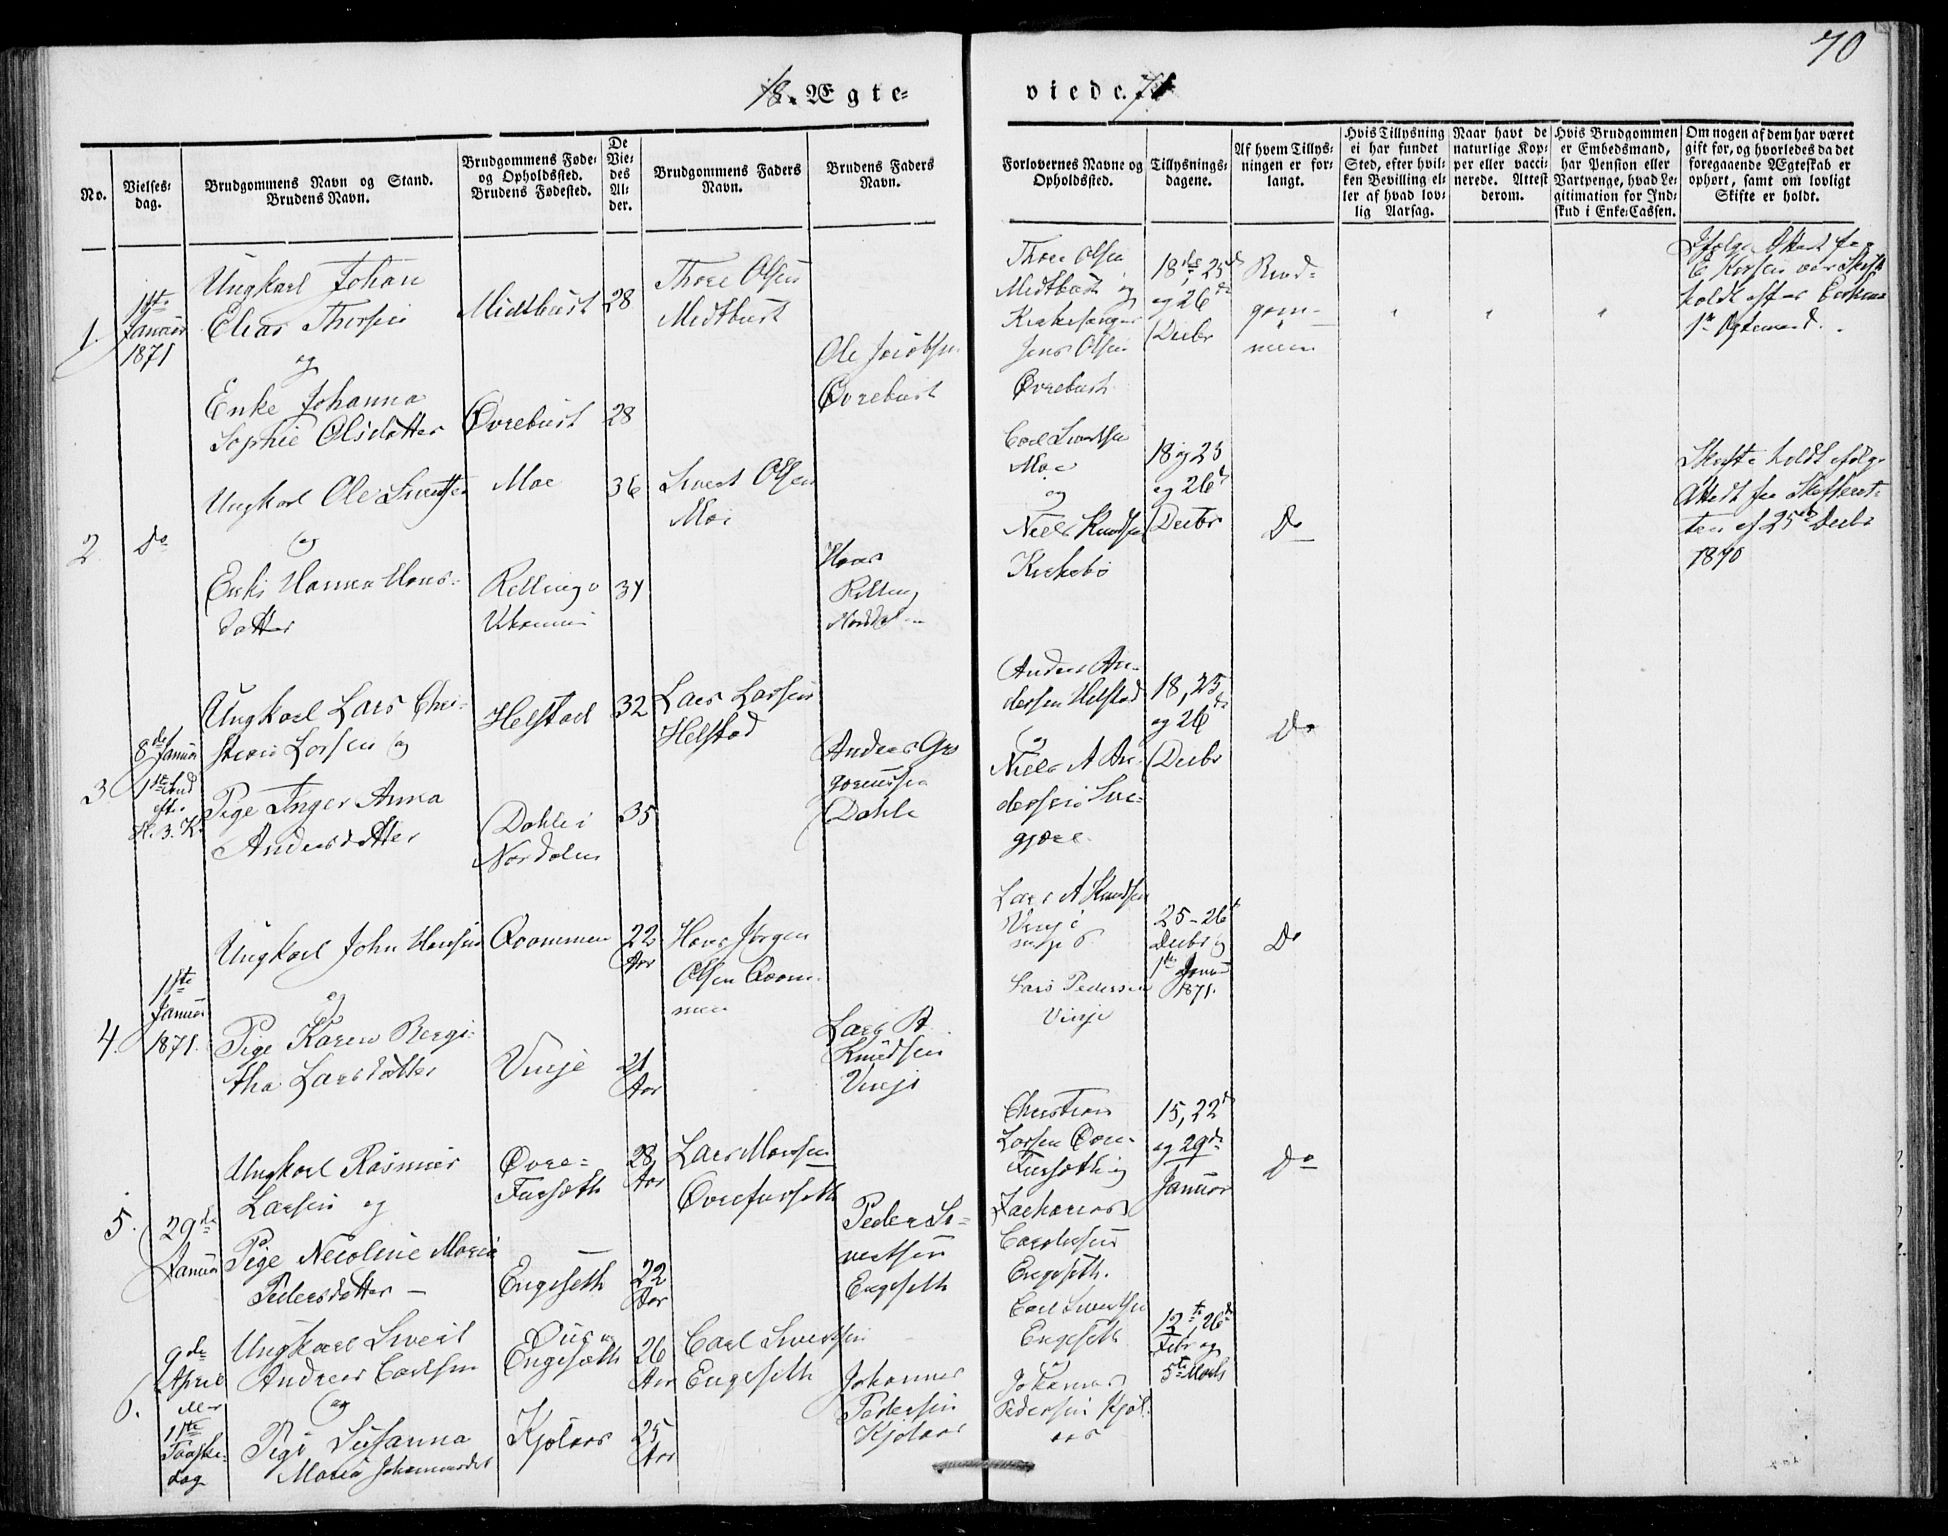 70
18. Ægteviede. 71
No.
Vielsesdag.
Brudgommens Navn og Stand.
Brudens Navn.
Brudgommens Føde-
og Opholdssted.
Brudens Fødested.
De
Vie-
des
Al-
der.
Brudgommens Faders
Navn.
Brudens Faders
Navn.
Forlovernes Navne og
Opholdssted.
Tillysnings-
dagene.
Af hvem Tillys-
ningen er for-
langt.
Hvis Tillysning
ei har fundet
Sted, efter hvil-
ken Bevilling el-
ler af hvad lov-
lig Aarsag.
Naar havt de
naturlige Kop-
per eller vacci-
nerede. Attest
derom.
Hvis Brudgommen
er Embedsmand,
har Pension eller
Vartpenge, hvad Le-
gitimation for Ind-
skud i Enke-Cassen.
Om nogen af dem har været
gift før, og hvorledes da det
foregaaende Ægteskab er
ophørt, samt om lovligt
Skifte er holdt.
1.
1ste
Januar
1871
Ungkarl Johan
Elias Thoresen
og
Enke Johanna
Sophie Olsdatter
Midtbust
Øvrebust
28
28
Thore Olsen
Midtbust
Ole Jacobsen
Øvrebust
Thore Olsen
Midtbust og
Kirkesanger
Jens Olsen
Øvrebust
18de, 25de
og 26de
Decbr
Brud-
gom-
men
" " "
holdt efter
1ste Ægtemand.
2.
Do
Ungkarl Ole Sivertsen
og
Enke Hanna Hans-
datter
Moe
Relling
36
34
Sivert Olsen
Moe
Hans
Relling
Norddal
Carl Sivertsen
Moe
og
Niels Knudsen
Kirkebø
18 og 25
og 26de
Decbr
Do
Skifte holdt ifølge
Attest fra Skifteret-
ten af 25de Decbr
1870
3.
8de Januar
1ste Sønd
efter
H. 3. K.
Ungkarl Lars Chri-
stian Larsen og
Pige Inger Anna
Andersdatter
Helstad
Dahle i
Nordalen
32
35
Lars Larsen
Helstad
Anders Gre
goriussen
Dahle
Anders An-
dersen Helstad
og
Niels A An-
dersen Sve-
gjære
18, 25
og 26de
Decbr
Do
4.
1ste
Januar
1871.
Ungkarl John Hansen
og
Pige Karen Bergi-
tha Larsdatter
Qvammen
Vinje
22
Aar
21
Aar
Hans Jørgen
Olsen Qvam-
men
Lars A.
Knudsen
Vinje
Lars A Knudsen
Vinje
Lars Pedersen
Vinje
25-26de
Decbr og
1ste Januar
1871.
Do
5.
29de
Januar
Ungkarl Rasmus
Larsen og
Pige Nicoline Maria
Pedersdatter —
Øvre-
Furseth
Engeseth
28
Aar
22
Aar
Lars Hansen
Øvrefurseth
Peder Si-
vertsen
Engeseth
Christian
Larsen Øvre-
Furseth og
Zacharias
Carolusen
Engeseth.
15, 22de
og 29de
Januar
Do
6.
9de
April
eller
1ste
Paaske-
dag
Ungkarl Sivert
Andreas Carlsen
og
Pige Susanna
Maria Johannesdtr
Engeseth
Kjølaas
26
Aar
25
Aar
Carl Sivertsen
Engeseth
Johannes
Pedersen
Kjølaas
Carl Sivertsen
Engeseth
og
Johannes
Pedersen Kjøl-
aas
12te, 26de
Febr og
5te Marts